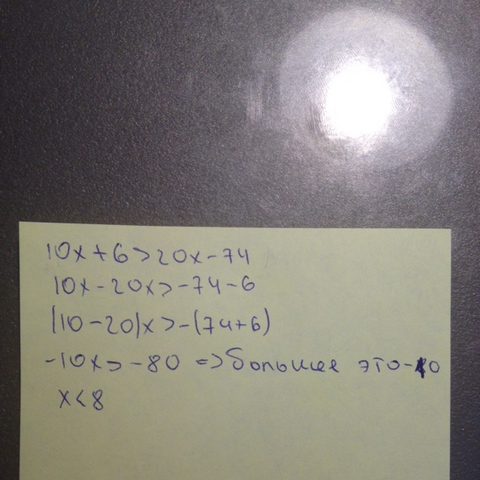 10x+6>20x-74
10x-20x>-74-6
(10-20)x>-(74+6)
-10x>-80 => большее это -10
x<8